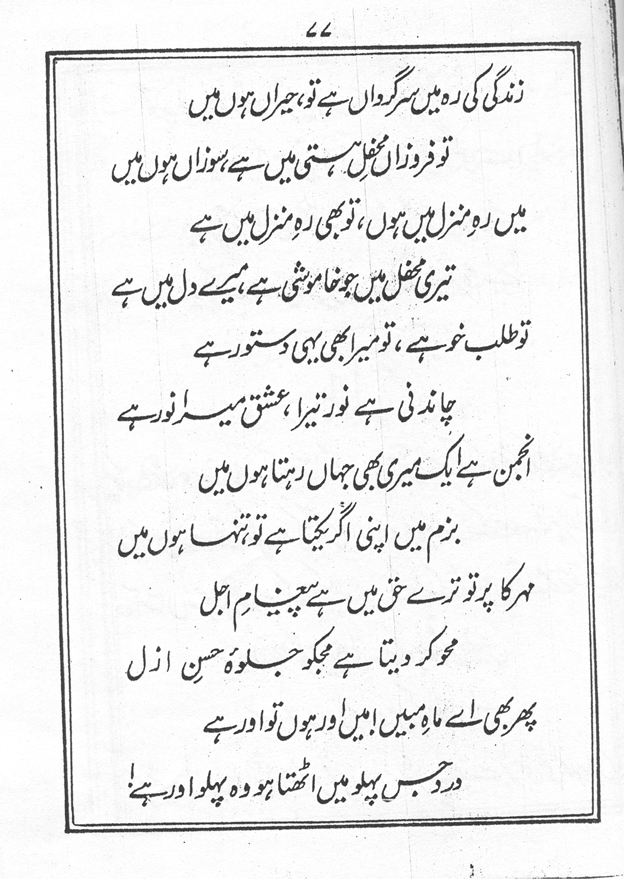 ۷۷
زندگی کی رہ میں سرگرداں ہے تو، حیراں ہوں میں
تو فروزاں محفلِ ہستی میں ہے، سوزاں ہوں میں
میں رہِ منزل میں ہوں، تو بھی رہِ منزل میں ہے
تیری محفل میں جو خاموشی ہے، میرے دل میں ہے
تو طلب خو ہے، تو میرا بھی یہی دستور ہے
چاندنی ہے نور تیرا، عشق میرا نور ہے
انجمن ہے ایک میری بھی جہاں رہتا ہوں میں
بزم میں اپنی اگر یکتا ہے تو تنہا ہوں میں
مہر کا پرتو ترے حق میں ہے پیغامِ اجل
محو کر دیتا ہے مجکو جلوۂ حسنِ ازل
پھر بھی اے ماہِ مبیں! میں اور ہوں تو اور ہے
درد جس پہلو میں اٹھتا ہو وہ پہلو اور ہے!